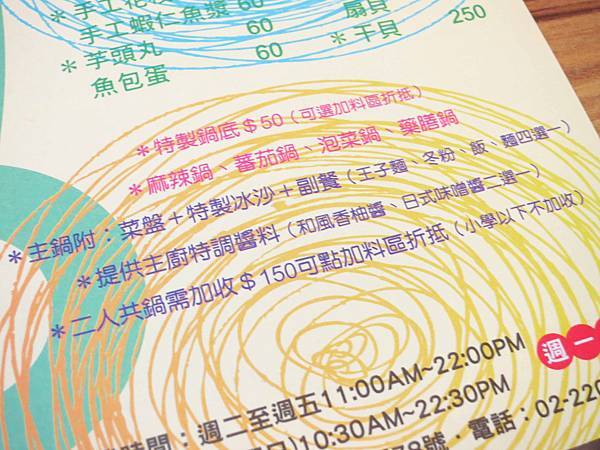 手工蝦仁魚漿 60
扇貝
*芋頭丸 60
*干貝 250
魚包蛋
*特製鍋底$50(可選加料區折抵)
*麻辣鍋、蕃茄鍋、泡菜鍋、藥膳鍋
*主鍋附:菜盤+特製冰沙+副餐(王子麵、冬粉、飯、麵四選一)
*提供主廚特調醬料(和風香柚醬、日式味噌醬二選一)
*二人共鍋需加收$150可點加料區折抵(小學以下不加收)
時間:週二至週五11:00AM~22:00PM
週一
日)10:30AM~22:30PM
78號.電話:02-220